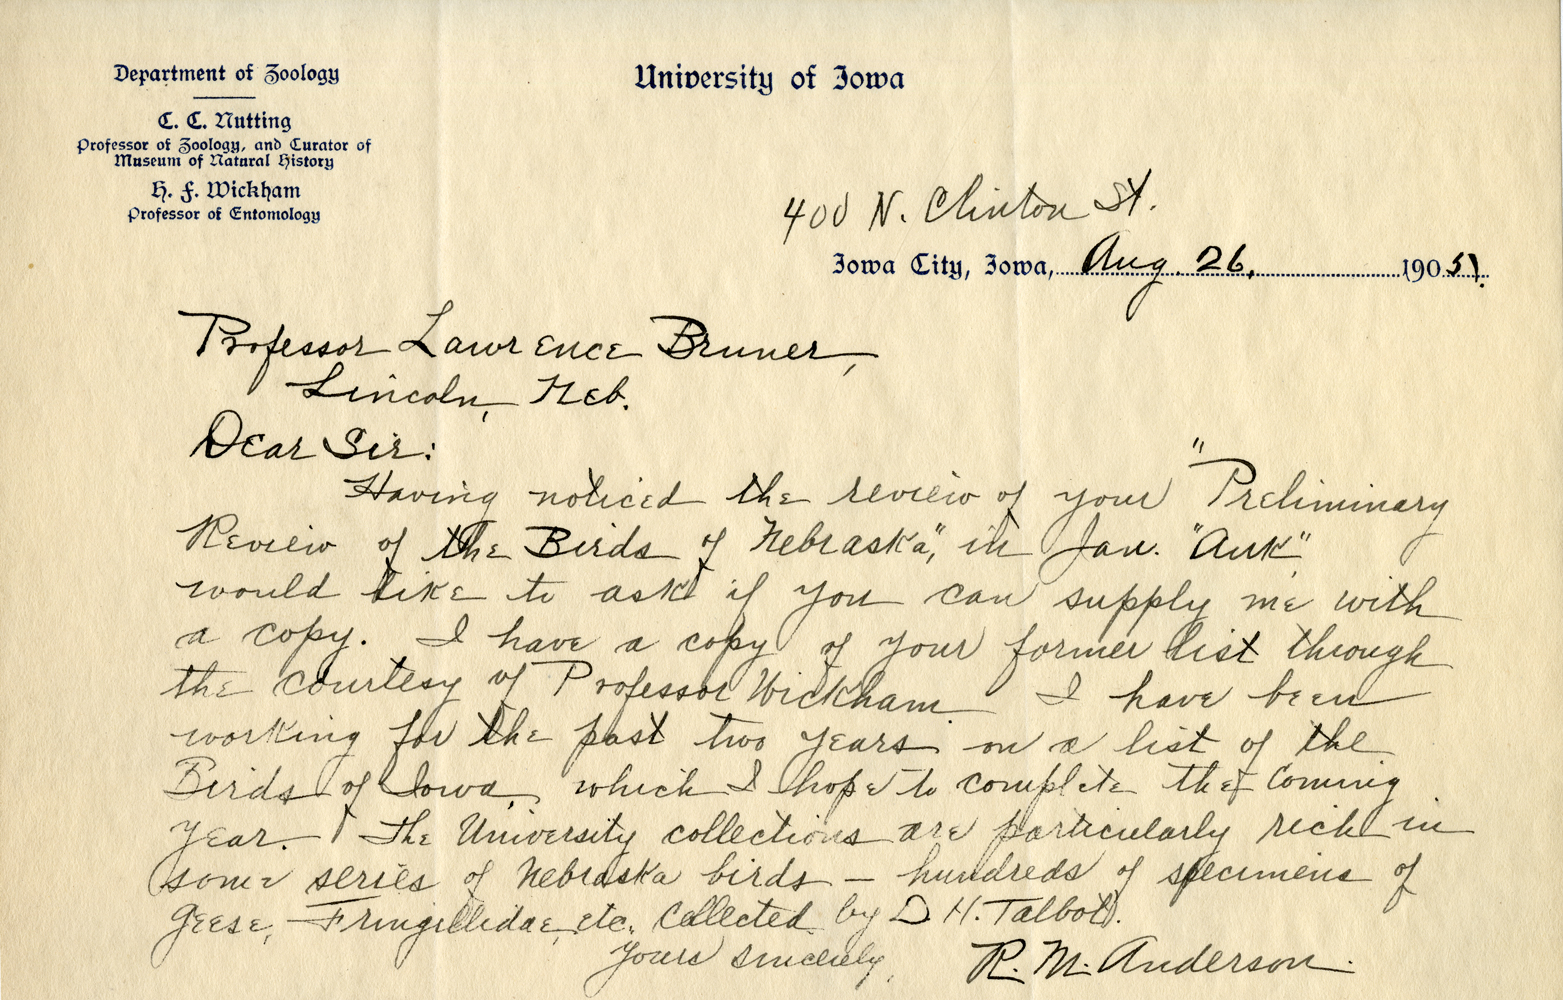 Department of Zoology
C. C. Nutting
Professor of Zoology, and Curator of
Museum of Natural History
H. F. Wickham
Professor of Entomology
University of Iowa
400 N. Clinton St.
Iowa City, Iowa, Aug. 26, 1905.
Professor Lawrence Bruner,
Lincoln, Neb.
Dear Sir:
Having noticed the review of your "Preliminary
Review of the Birds of Nebraska", in Jan. "Auk"
would like to ask if you can supply me with
a copy. I have a copy of your former list through
the courtesy of Professor Wickham. I have been
working for the past two years on a list of the
Birds of Iowa, which I hope to complete the coming
year. The University collections are particularly rich in
some series of Nebraska birds – hundreds of specimens of
geese, Fringillidae, etc. collected by D. H. Talbot.
Yours sincerely,
R. M. Anderson.